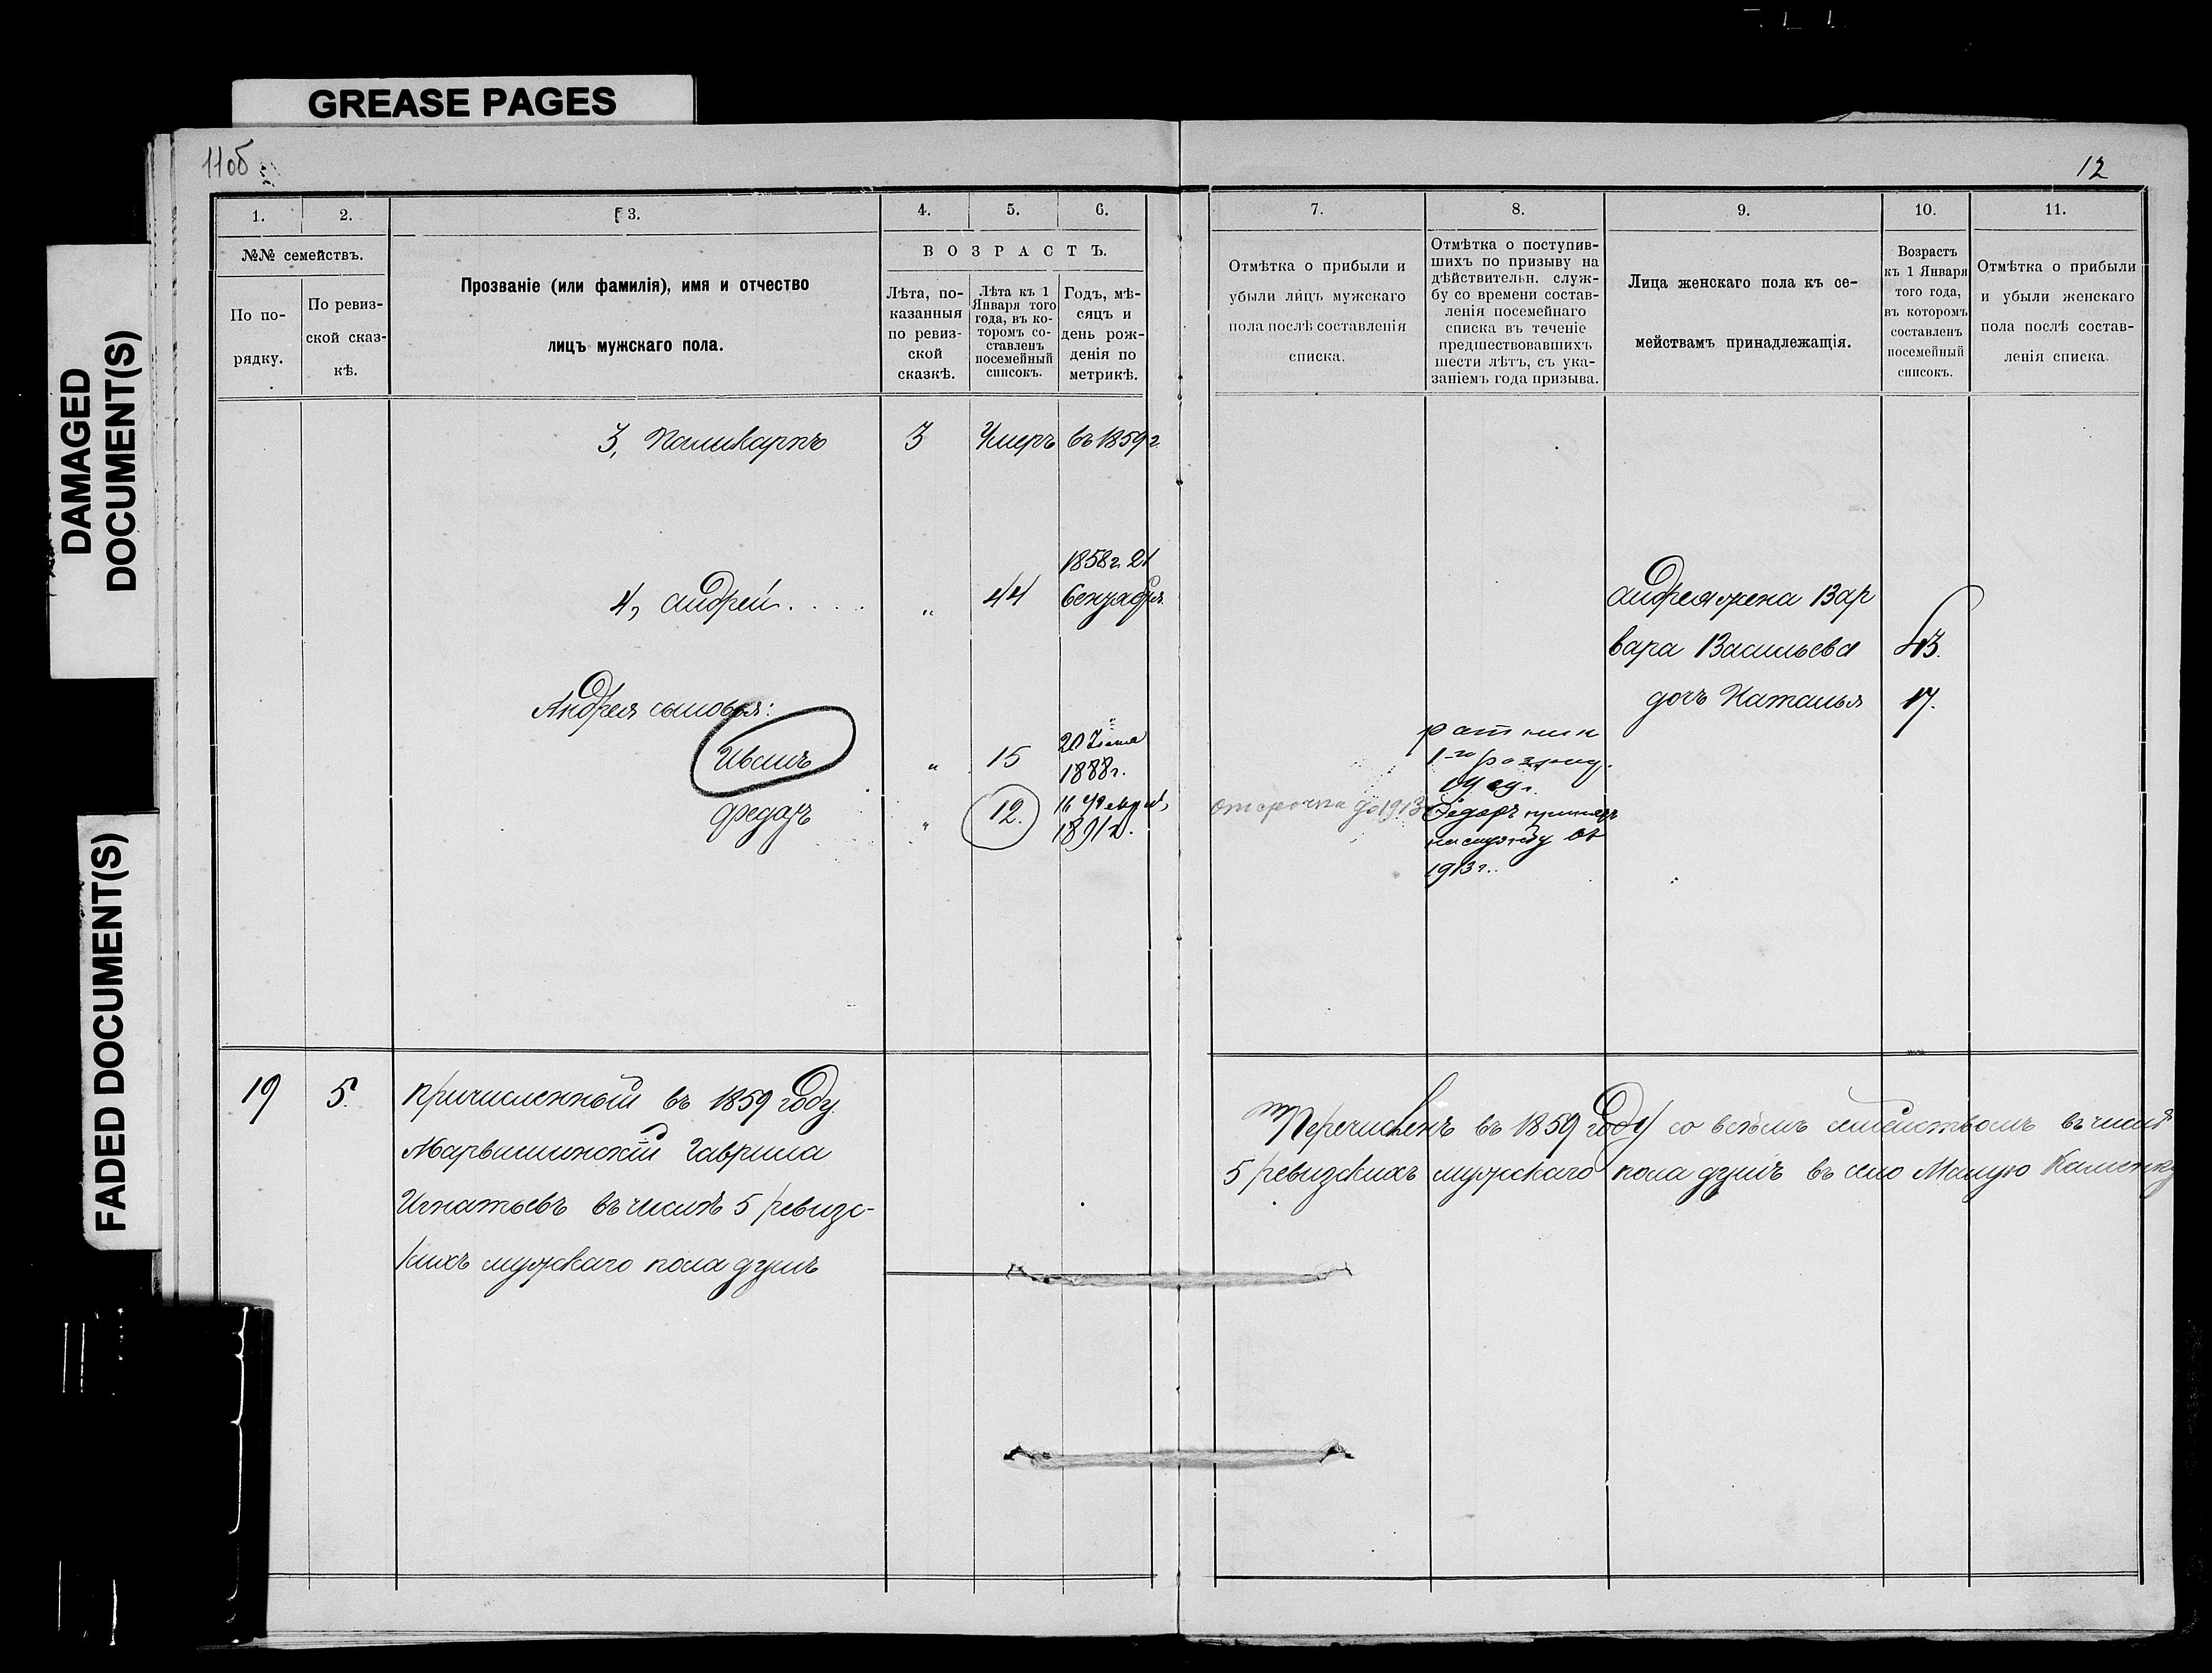 GREASE PAGES
DAMAGED
DOCUMENT(S)
FADED DOCUMENT(S)
11об
12
1.
2.
3.
4.
5.
6.
№№ семействъ.
По по-
рядку.
По ревиз-
ской сказ-
кѣ.
Прозваніе (или фамилія), имя и отчество
лицъ мужскаго пола.
ВОЗРАСТЪ.
Лѣта, по-
казанныя
по ревиз-
ской
сказкѣ.
Лѣта къ 1
Января того
года, въ ко-
торомъ со-
ставленъ
посемейный
списокъ.
Годъ, мѣ-
сяцъ и
день рож-
денія по
метрикѣ.
7.
8.
9.
10.
11.
Отмѣтка о прибыли и
убыли лицъ мужскаго
пола послѣ составленія
списка.
Отмѣтка о поступив-
шихъ по призыву на
дѣйствительн. служ-
бу со времени состав-
ленія посемейнаго
списка въ теченіе
предшествовавшихъ
шести лѣтъ, съ ука-
заніемъ года призыва.
Лица женскаго пола къ се-
мействамъ принадлежащія.
Возрастъ
къ 1 Января
того года,
въ которомъ
составленъ
посемейный
списокъ.
Отмѣтка о прибыли
и убыли женскаго
пола послѣ состав-
ленія списка.
3, Поликарпъ 3 Умеръ въ 1859 г
1858 г. 21
4, Андрей .... „ 44 Сентября
Андрея жена Вар
вара Васильева 43.
дочь Наталья 17.
Андрея сыновья:
Иванъ „ 15 20
1888 г.
ратник
1-го разряд.
1909 г.
Федоръ „ 12. 16 Феврал,
1891 г.
отсрочка до 1913
Федоръ принятъ
на службу въ
1913 г.
19 5. Причисленный въ 1859 году
Гаврила
Игнатьевъ въ числѣ 5 ревизс-
кихъ мужскаго пола душъ
Перечисленъ въ 1859 году со всѣмъ семействомъ въ числѣ
5 ревизскихъ мужскаго пола душъ въ село Малую Каменку